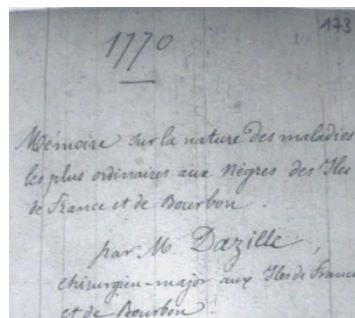 173
1770
Mémoire sur la nature des maladies
les plus ordinaires aux Nègres des Iles
de France et de Bourbon.
par M. Dazille,
chirurgien-major aux Iles de France
et de Bourbon.